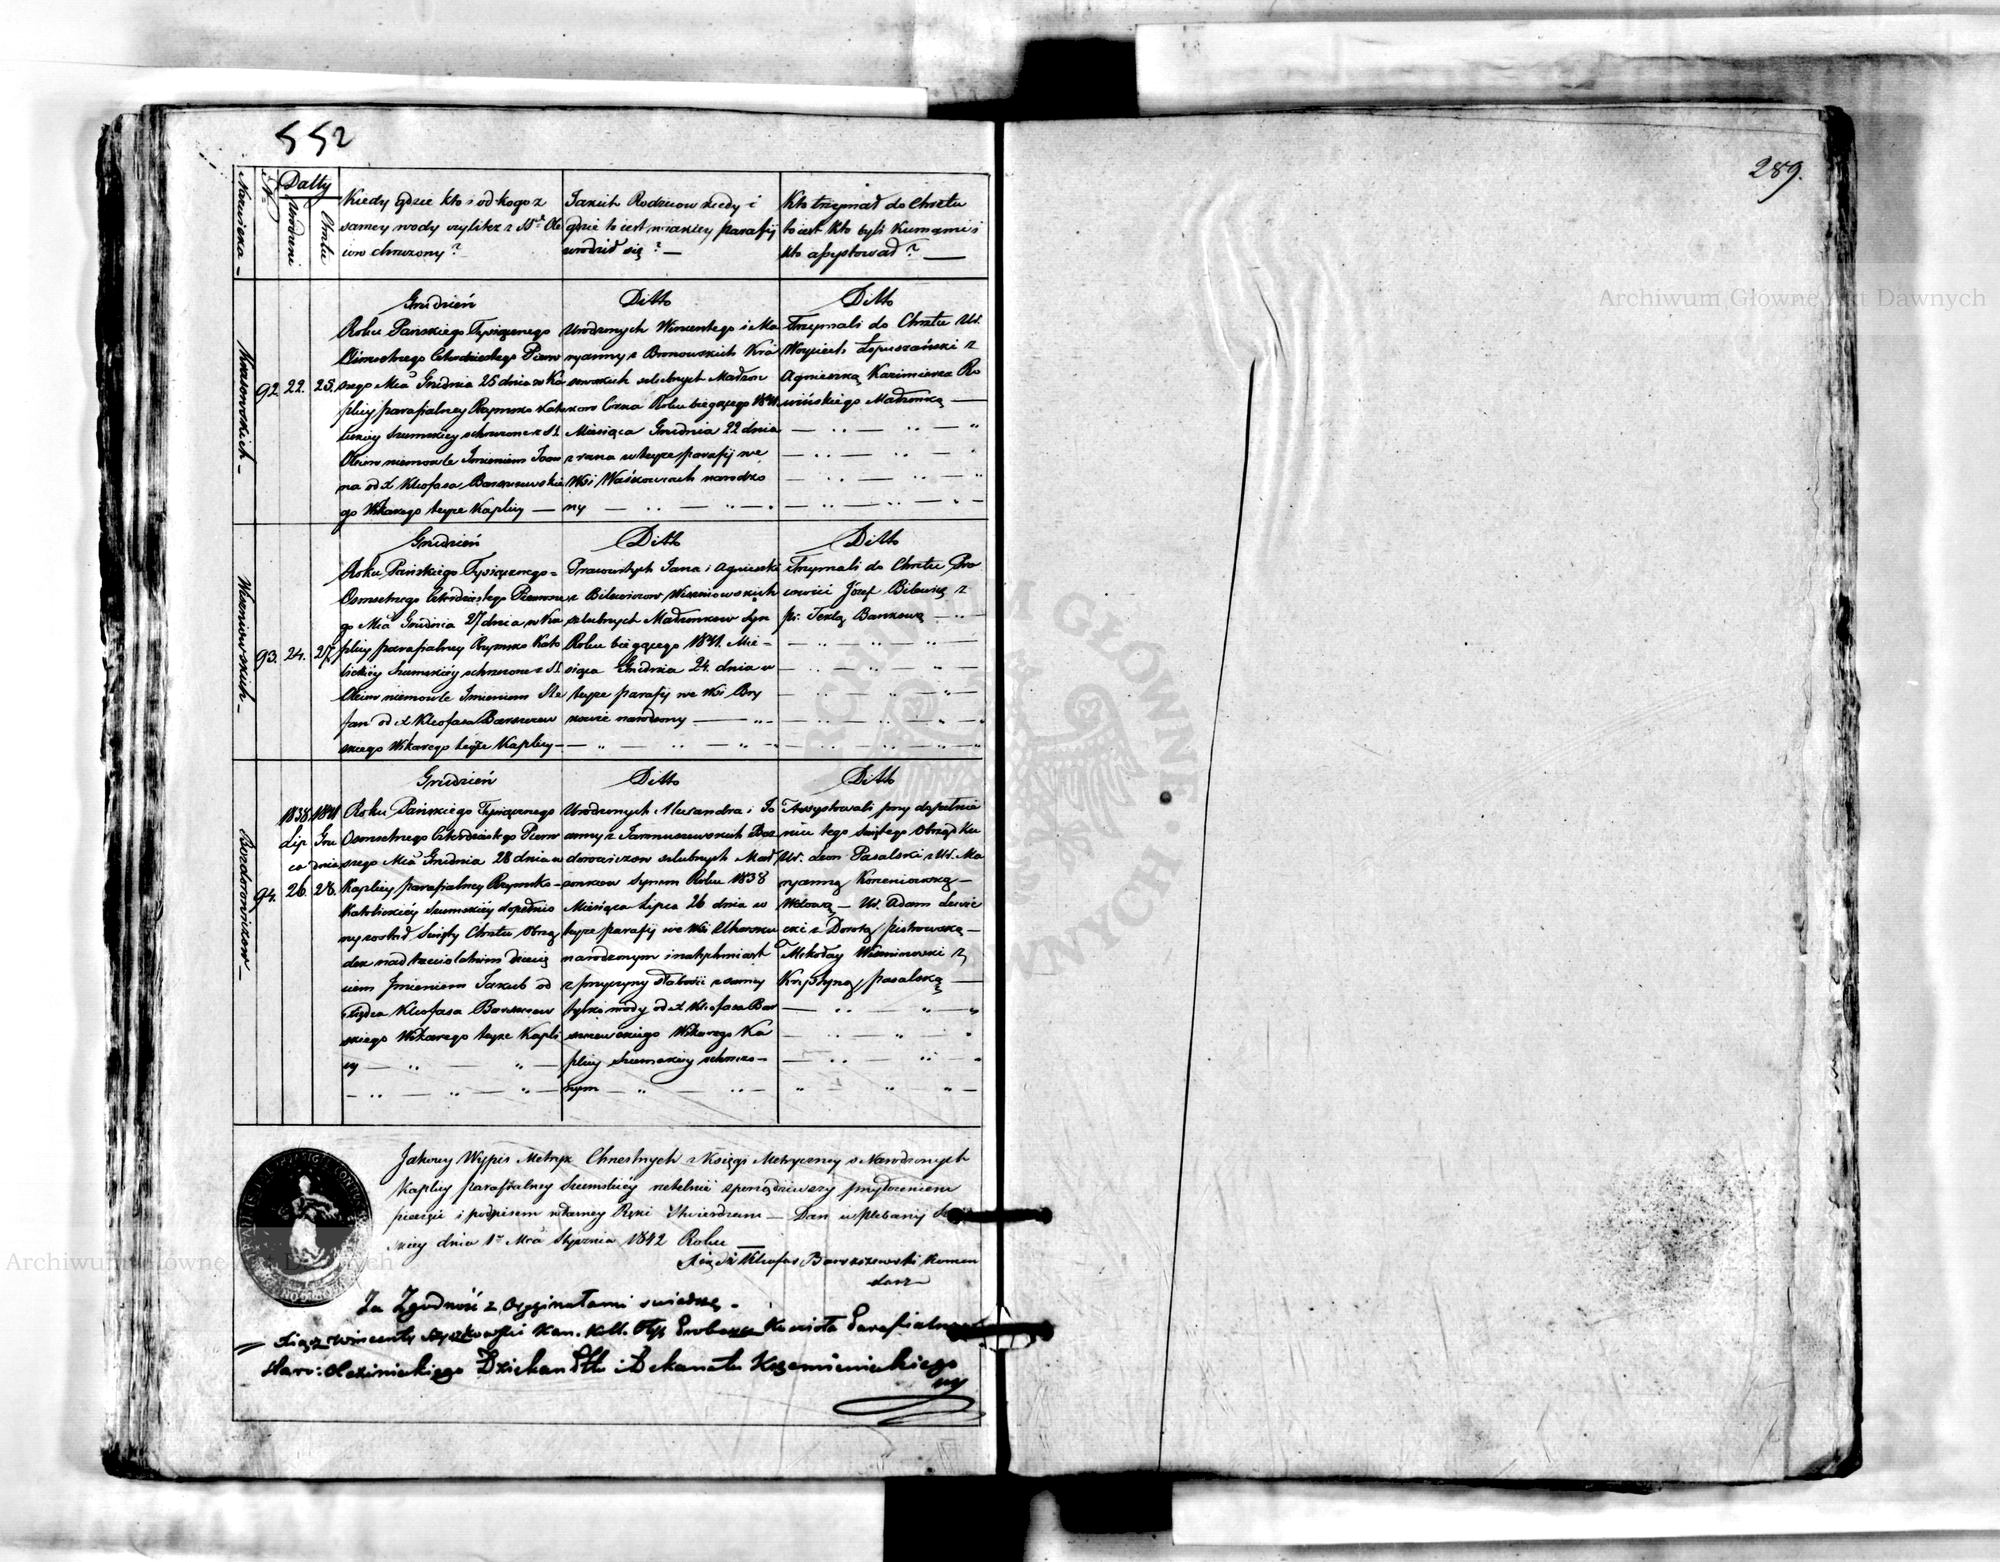 552
289.
Nazwiska
No
Datty
Urodzeni
Chrztu
Kiedy gdzie kto i od kogo z
samey wody czyli też z SStch Ole
iów chrzczony?
Jakich Rodziców kiedy i
gdzie to iest w iakiey parafij
urodził się? —
Kto trzymał do Chrztu
to iest kto byli Kumami i
kto assystował? —
Krasowskich
92.
22.
25.
Grudzień
Roku Pańskiego Tysiącznego
Ośmsetnego Czterdziestego Pierw
szego Mca Grudnia 25 dnia w Ka
plicy parafialney Rzymsko Kato
lickiey Szumskiey ochrzczone z SS.
Oleiow niemowle Imieniem Joan
na od X Kleofasa Barszczewskie
go Wikarego teyże Kaplicy —
Ditto
Urodzonych Wincentego i Ma
ryanny z Bronowskich Kra
sowskich szlubnych Małżon
ków Corka Roku bieżącego 1841.
Miesiąca Grudnia 22 dnia
z rana w teyże parafij we
Wsi Waśkowcach narodzo
ny
Ditto
Trzymali do Chrztu Ur.
Woyciech Łopuszański z
Agnieszką Kazimierza Ro
wińskiego Małżonką —
Wiszniowskich
93.
24.
27.
Grudzień
Roku Pańskiego Tysiącznego
Ośmsetnego Czterdziestego Pierwsze
go Mca Grudnia 27 dnia w Ka
plicy parafialney Rzymsko Kato
lickiey Szumskiey ochrzczone z SS.
Oleiow niemowle Imieniem Ste
fan od X Kleofasa Barszczew
skiego Wikarego teyże Kaplicy —
Ditto
Pracowitych Jana i Agnieszki
z Bilewiczow Wiszniowskich
szlubnych Małżonkow Syn
Roku bieżącego 1841. Mie-
siąca Grudnia 24. dnia w
teyże parafij we Wsi Bry
kowie narodzony —
Ditto
Trzymali do Chrztu Pra
cowici Józef Bilewicz z
pr: Teklą Bankową
Bozdorowiczow
94.
1838
Lip
ca
26.
1841
Gru
dnia
28.
Grudzień
Roku Pańskiego Tysiącznego
Ośmsetnego Czterdziestego Pierw
szego Mca Grudnia 28 dnia w
Kaplicy parafialney Rzymsko-
Katolickiey Szumskiey dopełnio
ny został Święty Chrztu Obrzą
dek nad trzecioletnim Dziecię
ciem Imieniem Jakub od
Xiędza Kleofasa Barszczew
skiego Wikarego teyże Kapli
cy —
Ditto
Urodzonych Alexandra i Jo
anny z Jarmuszewskich Boz
dorowiczow szlubnych Mał
żonkow Synem Roku 1838
Miesiąca Lipca 26 dnia w
teyże parafij we Wsi Uhorsku
narodzonym i natychmiast
z przyczyny słabości z samey
tylko wody od X Kleofasa Bar
szczewskiego Wikarego Ka
plicy Szumskiey ochrzczo-
nym
Ditto
Assystowali przy dopełnie
niu tego świętego Obrządku
Ur. Leon Pasalski z Ur. Ma
ryanną Korzeniowską —
Wdową — Ur. Adam Lewic
cki z Dorotą Piotrowską —
Mikołay Wiszniowski z
Krystyną Pasalską —
Jakowy Wypis Metryk Chrzestnych z Księgi Metryczney o Narodzonych
Kaplicy parafialney Szumskiey rzetelnie sporządziwszy przyłożeniem
pieczęci i podpisem własney Ręki stwierdzam — Dan w Plebanij
skiey dnia 1go Mca Stycznia 1842 Roku —
Xiądz Kleofas Barszczewski Komen
darz
Za Zgodność z Orginałami swiadczę —
Xiąz Wincenty Szyszkowski Kan. Koll. Oły. Proboszcz Kościoła Parafialnego
Staro: Olexinieckiego Dziekan Pttu i Dekanatu Krzemienieckiego
ARCHIWUM GŁÓWNE AKT DAWNYCH
Archiwum Główne Akt Dawnych
Archiwum Główne Akt Dawnych